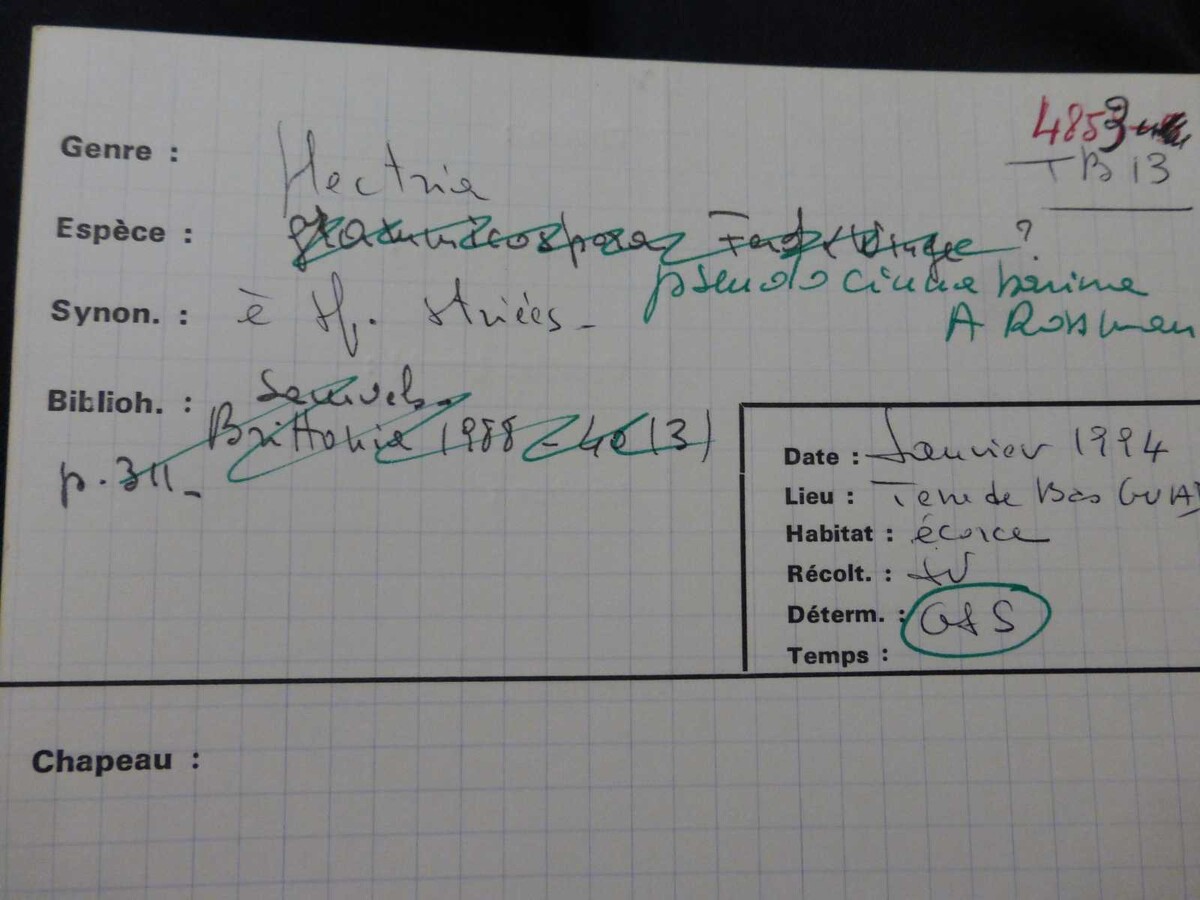 4853
TB 13
Genre : Nectria
Espèce : ?
pseudo cinnabarina
A Rossman
Synon. : è Sp. striées -
Biblioh. : Samuels.
Brittonia 1988 - 40 (3)
p. 311 -
Date : Janvier 1994
Lieu : Terre de Bas GUA
Habitat : écorce
Récolt. :
Déterm. : GJS
Temps :
Chapeau :